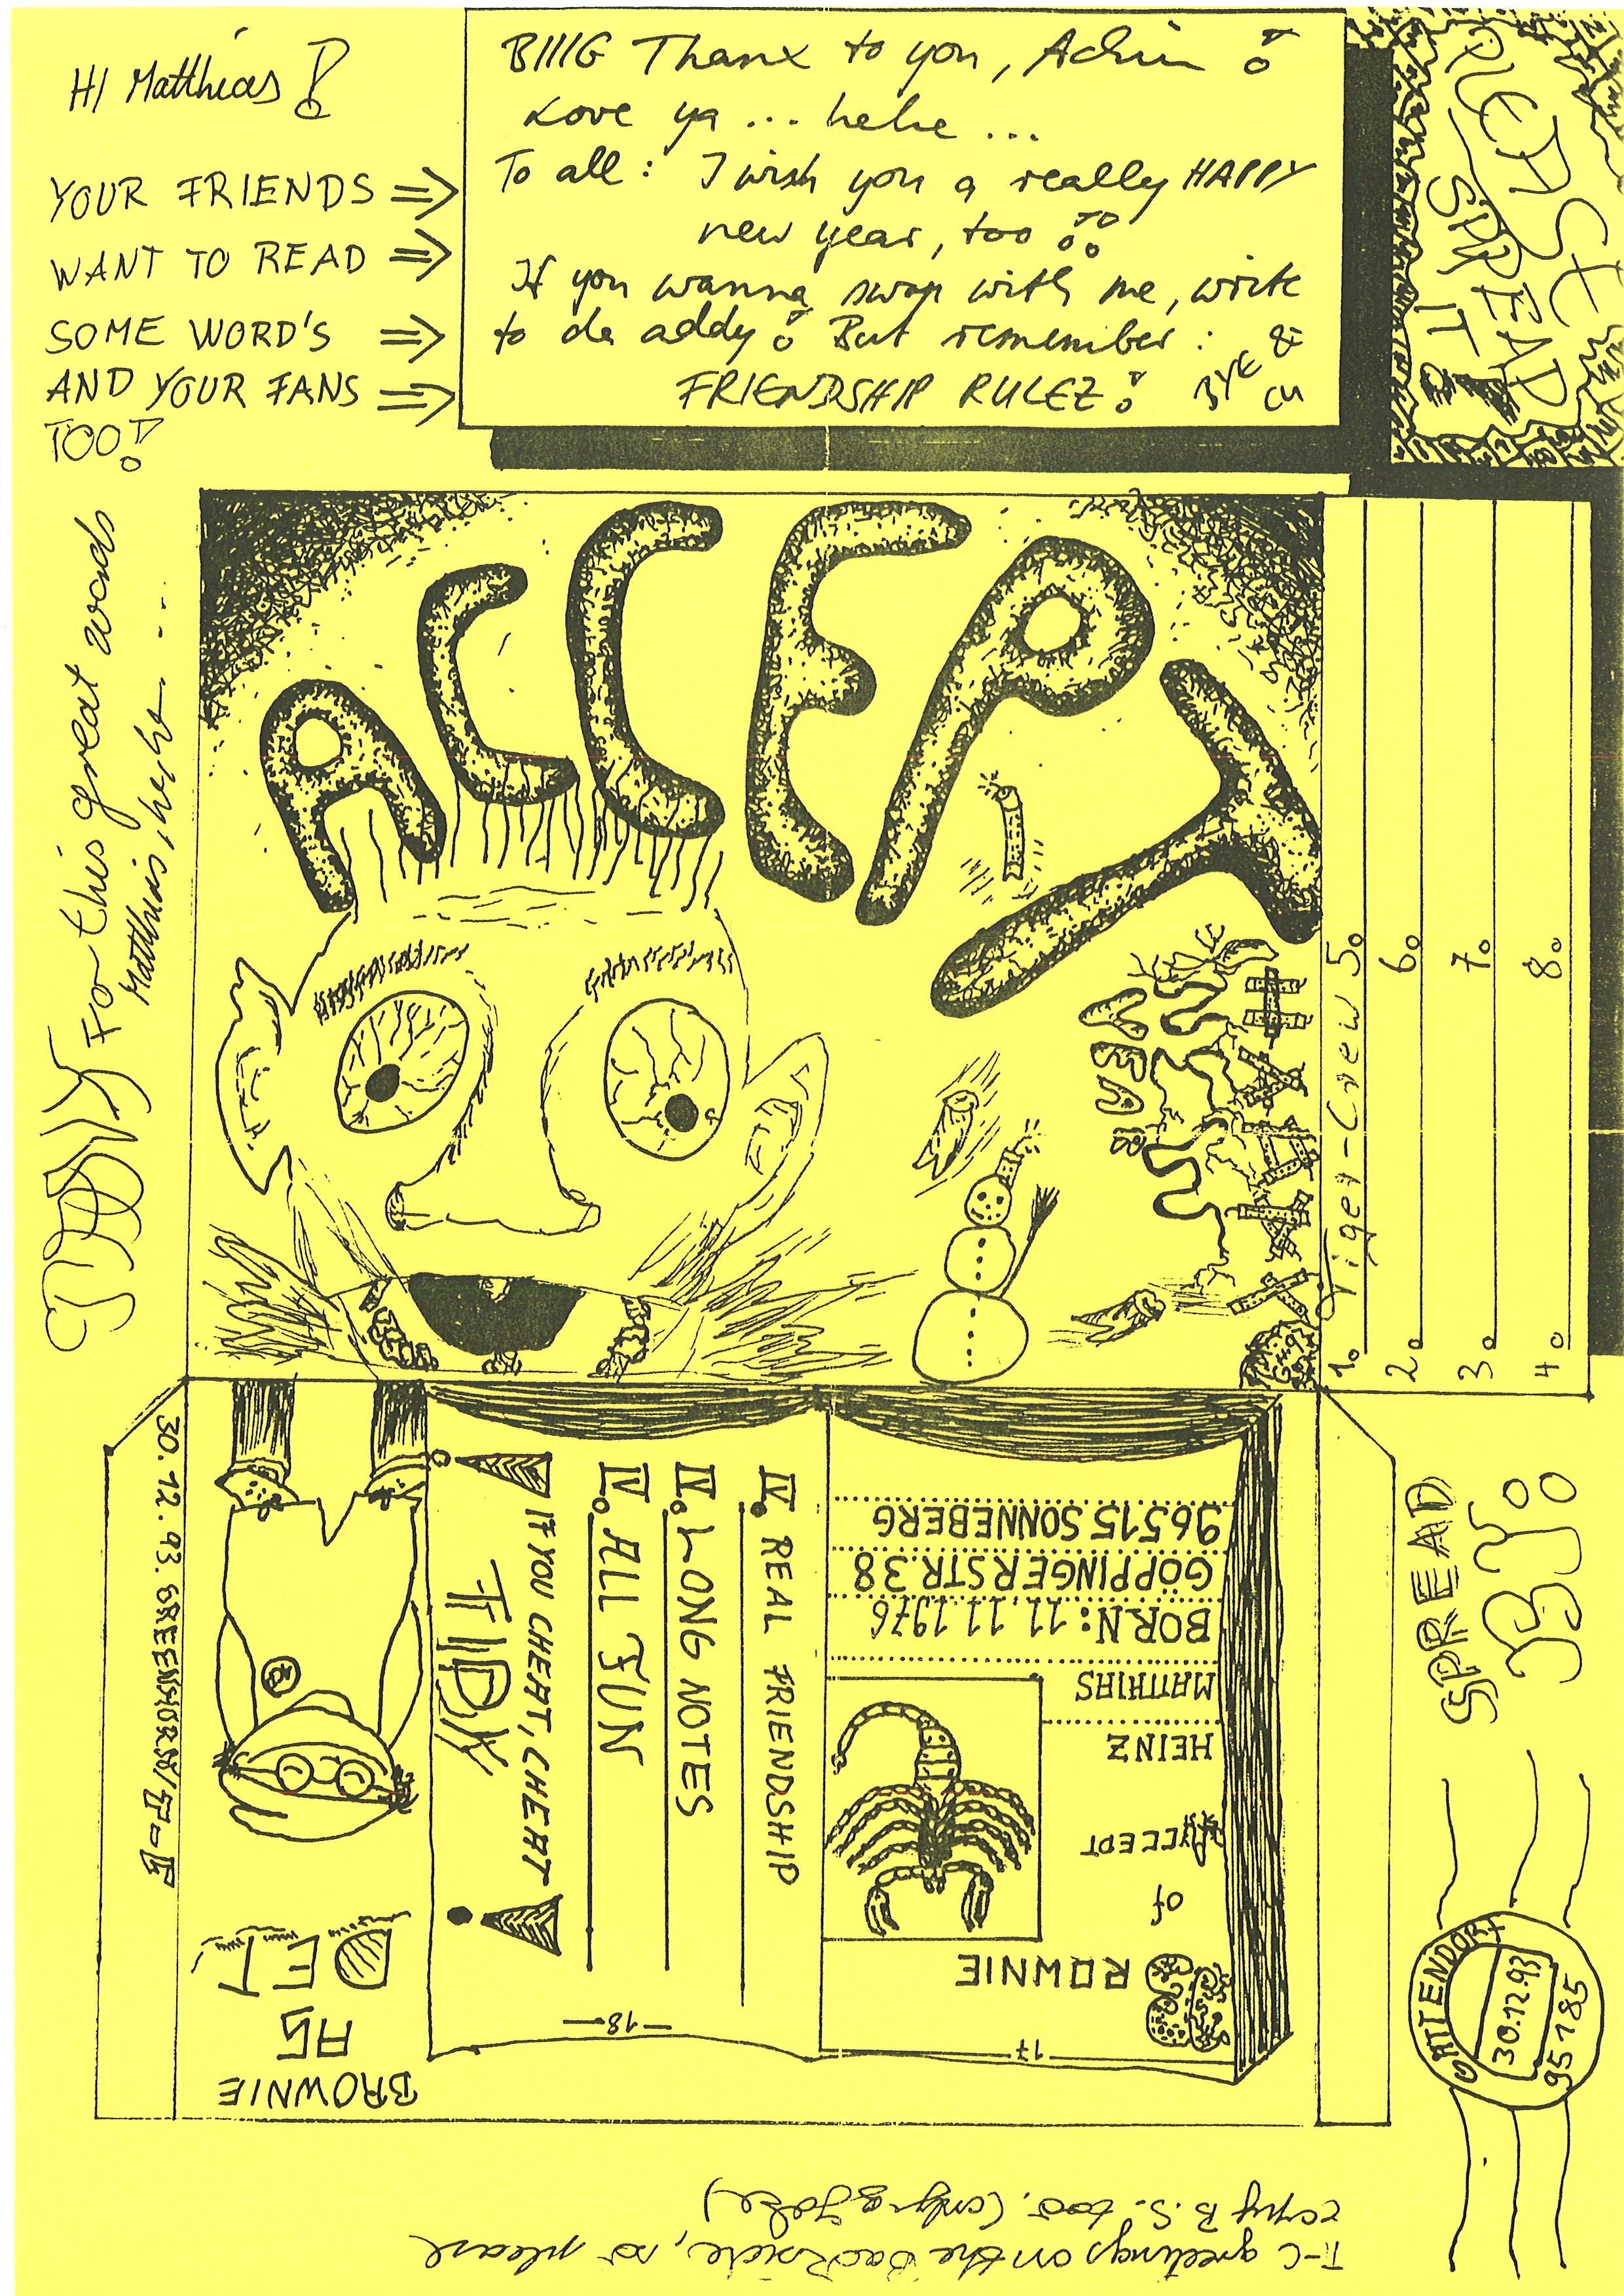 HI Matthias!
YOUR FRIENDS =>
WANT TO READ =>
SOME WORD'S =>
AND YOUR FANS =>
TOO!
BIIIG Thanx to you, Achim!
Love ya ... hehe ...
To all: I wish you a really HAPPY
new year, too!!
If you wanna swap with me, write
to da addy! But remember:
FRIENDSHIP RULEZ! BYE & cu
PLEASE
SPREAD
IT
For this great words
Matthias, hehe ....
ACCEPT
Tiger-Crew
1.
2.
3.
4.
5.
6.
7.
8.
30.12.93. GREENHORST/T.E
BROWNIE
AS
DET
IF YOU CHEAT, CHEAT
TIDY!
IV. ALL FUN
IV. LONG NOTES
IV. REAL FRIENDSHIP
-18-
17
BROWNIE
of
ACCEPT
HEINZ
MATTHIAS
BORN: 11.11.1976
GÖPPINGERSTR.38
96515 SONNEBERG
SPREAD
BY:
GATTENDORF
30.12.93
95185
T-C greetings on the Backside, so please
copy B.S. too. (only a Joke)